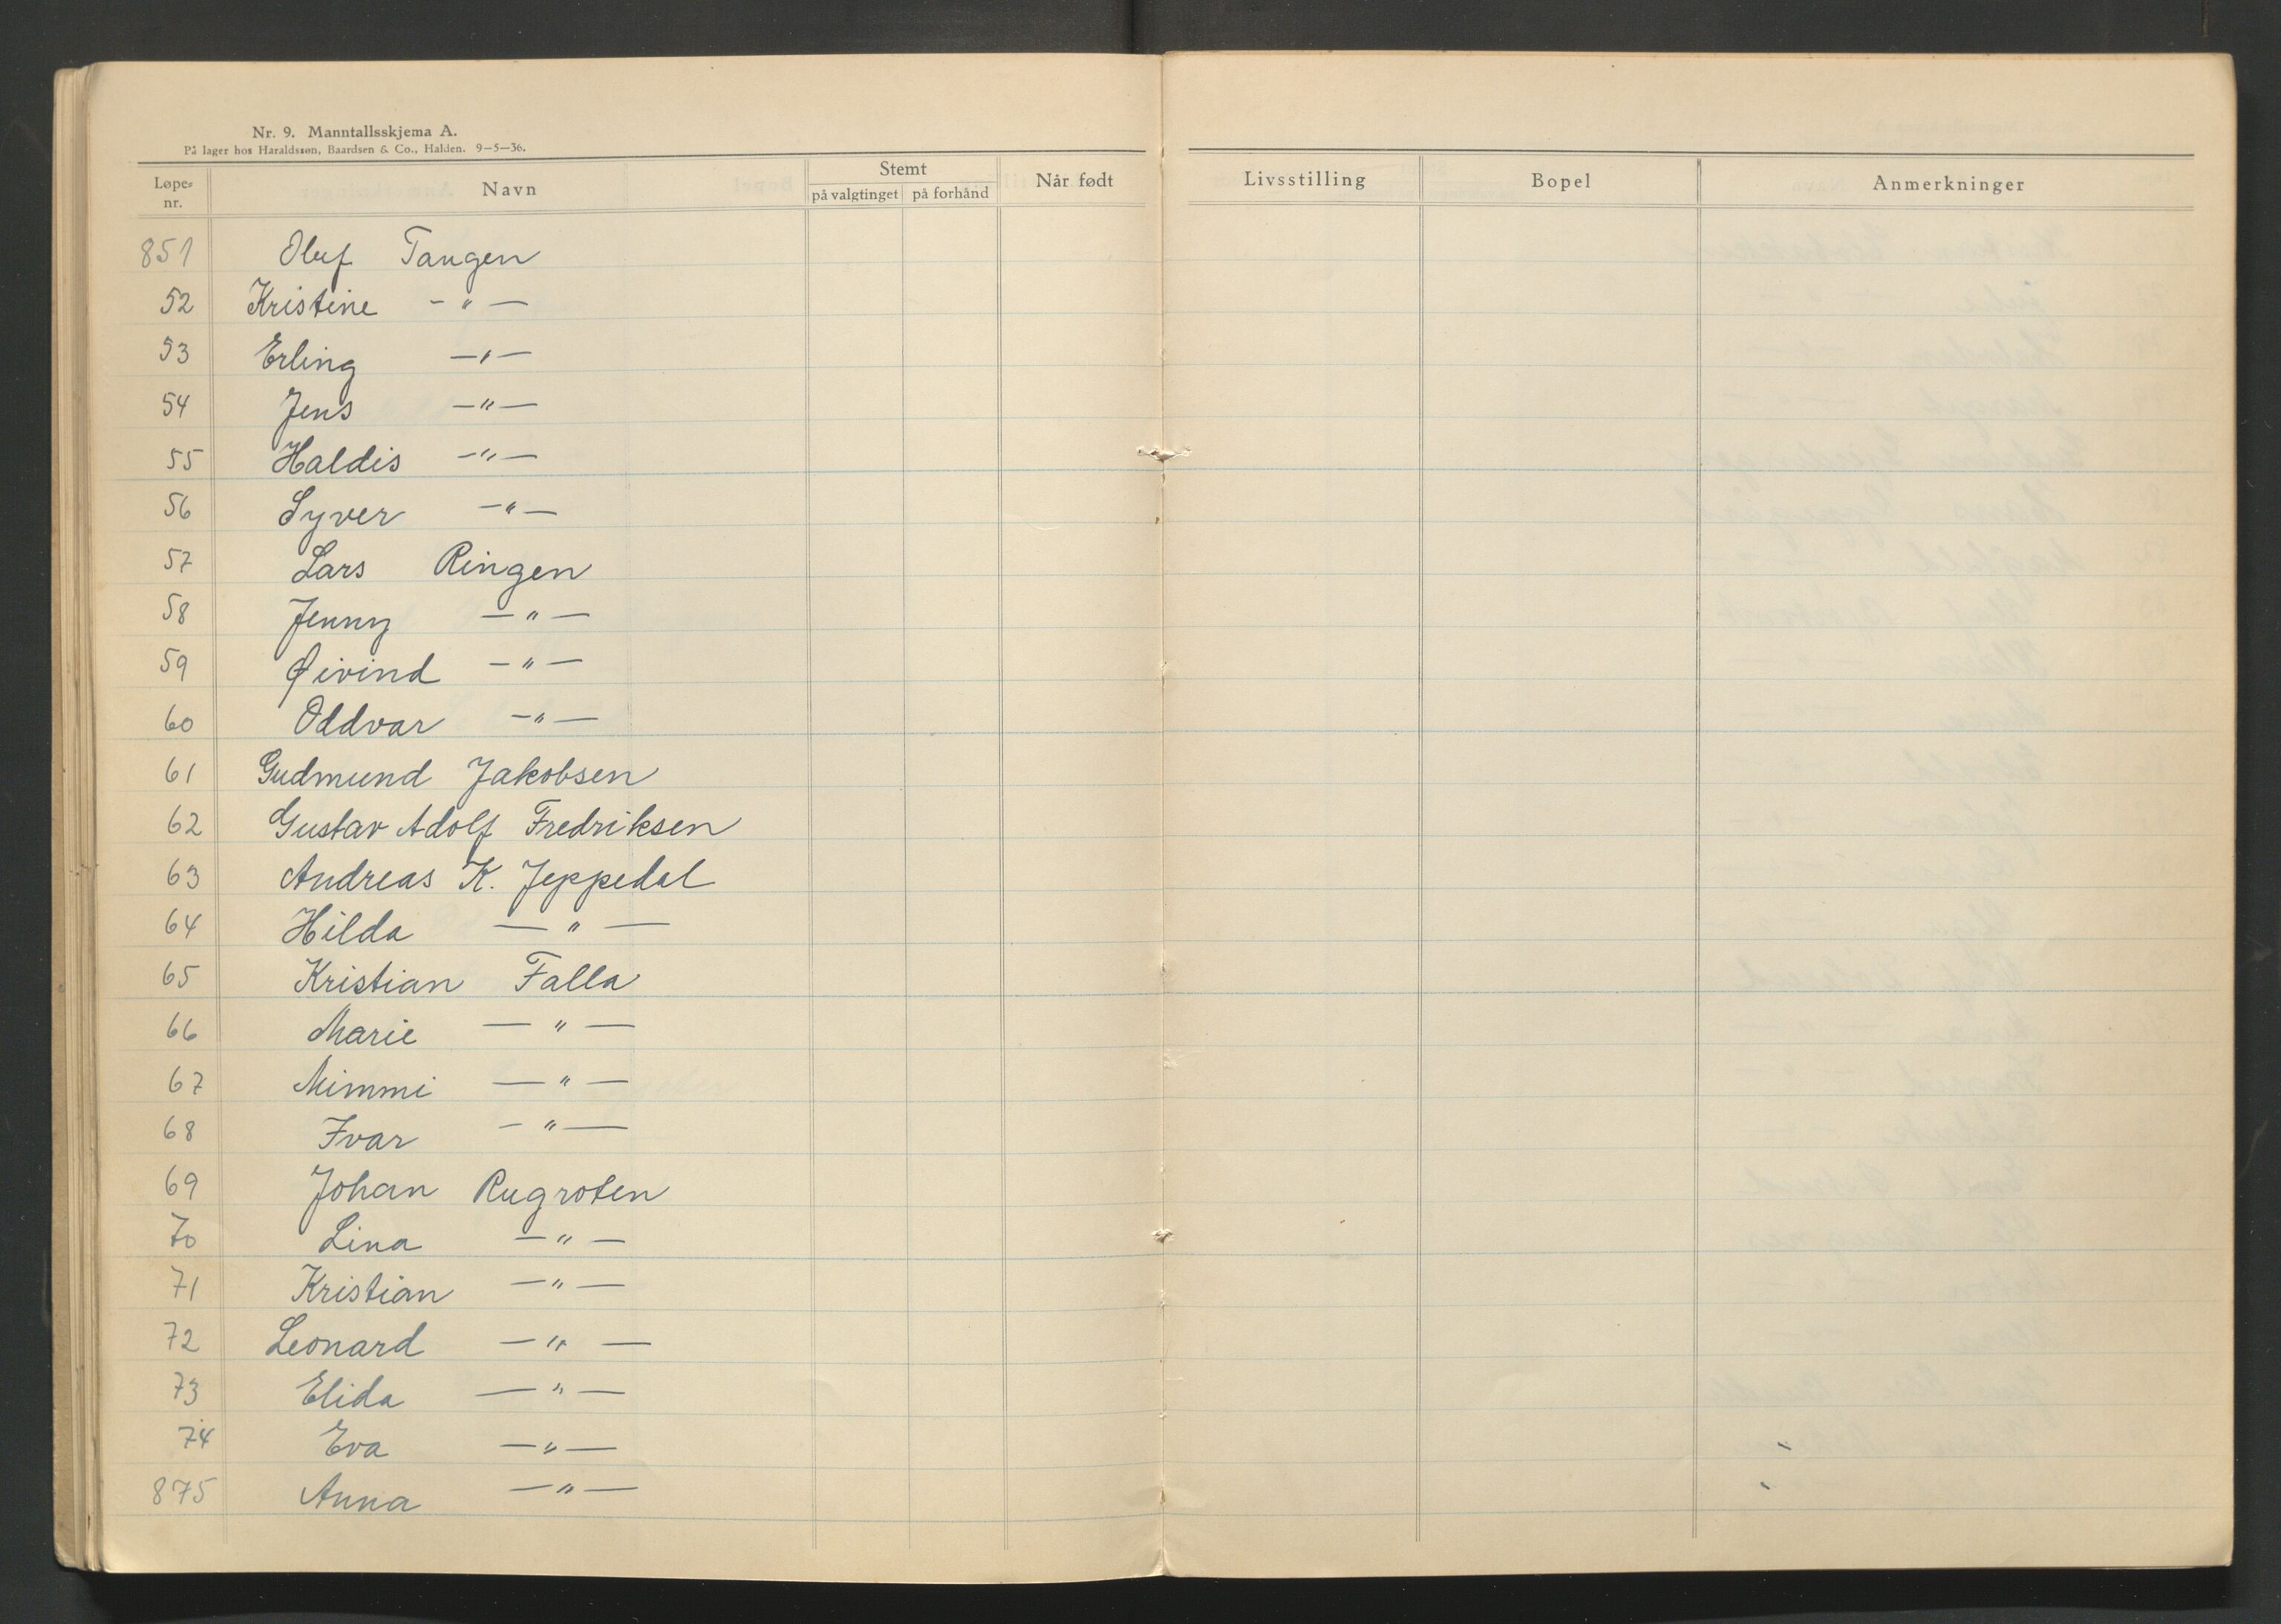 Nr. 9. Manntallsskjema A.
På lager hos Haraldssøn, Baardsen & Co., Halden. 9—5—36.
Løpe-nr. Navn Stemt på valgtinget på forhånd Når født Livsstilling Bopel Anmerkninger
851 Oluf Tangen
52 Kristine -"-
53 Erling -"-
54 Jens -"-
55 Haldis -"-
56 Syver -"-
57 Lars Ringen
58 Jenny -"-
59 Øivind -"-
60 Oddvar -"-
61 Gudmund Jakobsen
62 Gustav Adolf Fredriksen
63 Andreas K. Jeppedal
64 Hilda -"-
65 Kristian Falla
66 Marie -"-
67 Mimmi -"-
68 Ivar -"-
69 Johan Rugroten
70 Lina -"-
71 Kristian -"-
72 Leonard -"-
73 Elida -"-
74 Eva -"-
875 Anna -"-